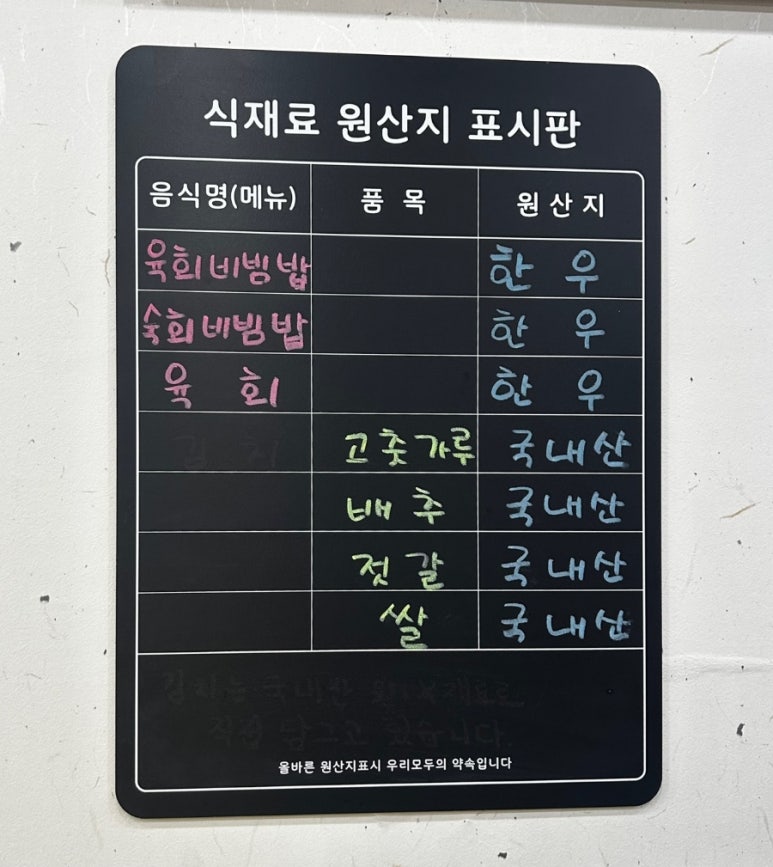 식재료 원산지 표시판
음식명(메뉴) 품 목 원 산 지
육회비빔밥 한 우
숙회비빔밥 한 우
육 회 한 우
김 치 고춧가루 국내산
배 추 국내산
젓 갈 국내산
쌀 국내산
직접 담그고 있습니다.
올바른 원산지표시 우리모두의 약속입니다